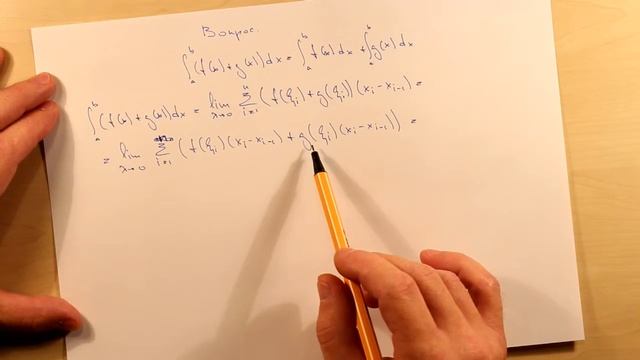 Вопрос.
∫ₐᵇ (f(x) + g(x)) dx = ∫ₐᵇ f(x) dx + ∫ₐᵇ g(x) dx
∫ₐᵇ (f(x) + g(x)) dx = lim_{λ→0} Σ_{i=1}^{n} (f(ξᵢ) + g(ξᵢ)) (xᵢ − xᵢ₋₁) =
= lim_{λ→0} Σ_{i=1}^{n} (f(ξᵢ)(xᵢ − xᵢ₋₁) + g(ξᵢ)(xᵢ − xᵢ₋₁)) =